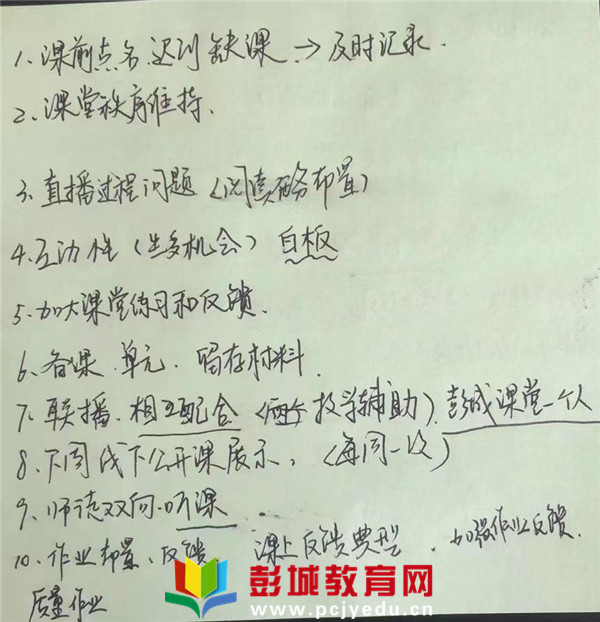 1、课前点名 迟到 缺课 → 及时记录.
2、课堂秩序维持.
3、直播过程问题（阅读 布置）
4、互动性（生多机会）白板
5、加大课堂练习和反馈.
6、备课.单元.留存材料.
7、联播.相互配合（教学辅助）.彭城课堂一人
8、下周线下公开课展示，（每周一次）
9、师徒双向听课
10、作业布置、反馈 课上反馈典型.加强作业反馈.
质量作业
彭城教育网
www.pcjyedu.cn